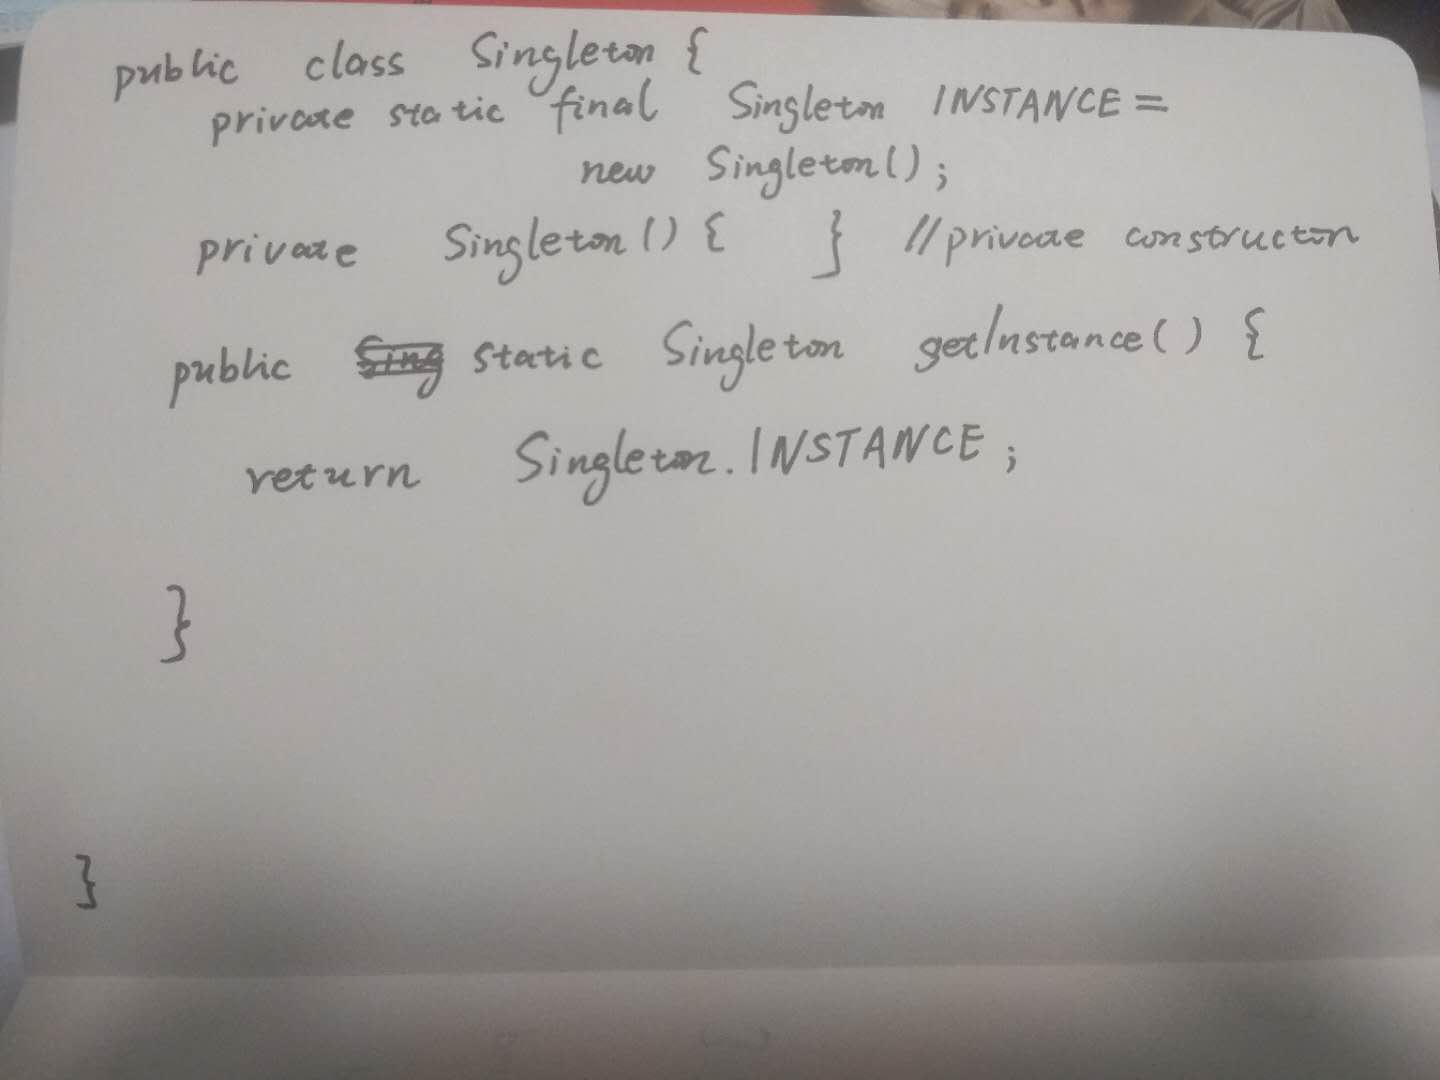 public class Singleton {
private static final Singleton INSTANCE =
new Singleton();
private Singleton() { } //private constructor
public static Singleton getInstance() {
return Singleton.INSTANCE;
}
}